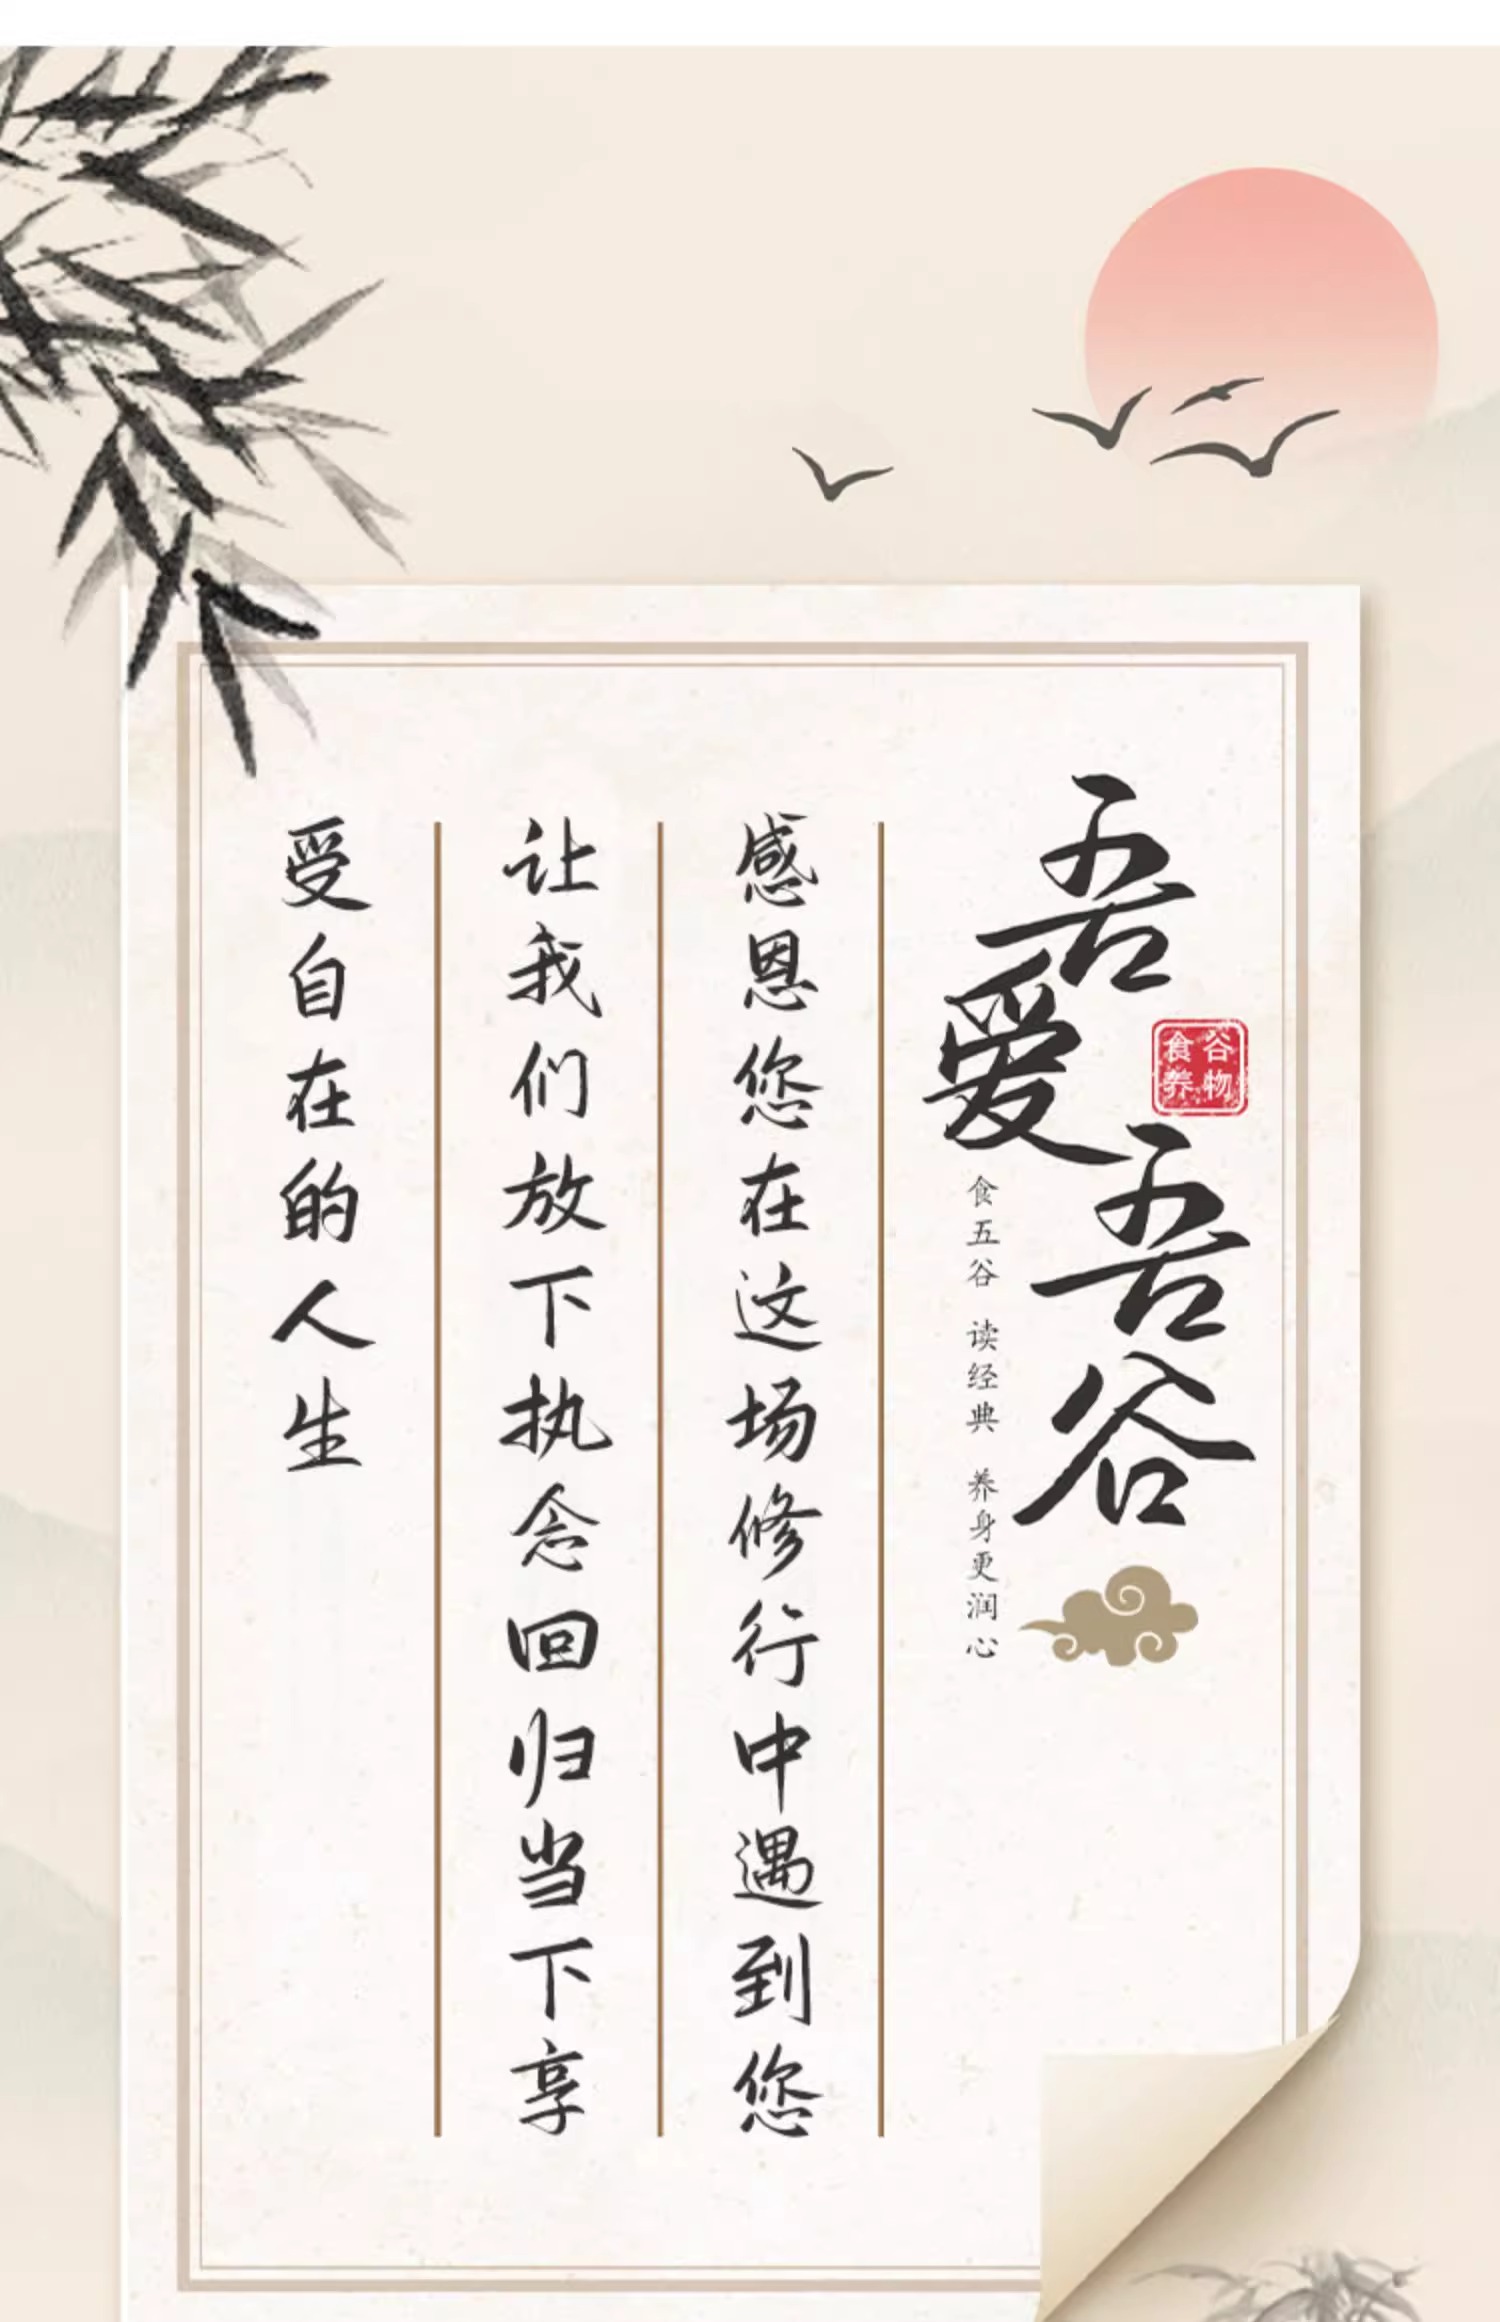 吾爱吾谷
谷物
食养
食五谷 读经典 养身更润心
感恩您在这场修行中遇到您
让我们放下执念回归当下享
受自在的人生